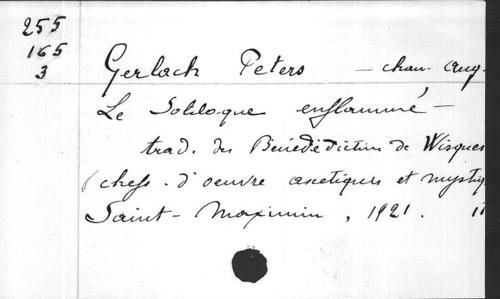 255
165
3
Gerlach Peters — chan. aug.
Le Soliloque enflammé —
trad. des Bénédictins de Wisques
(chefs d'oeuvre ascétiques et mystiq
Saint-Maximin, 1921.